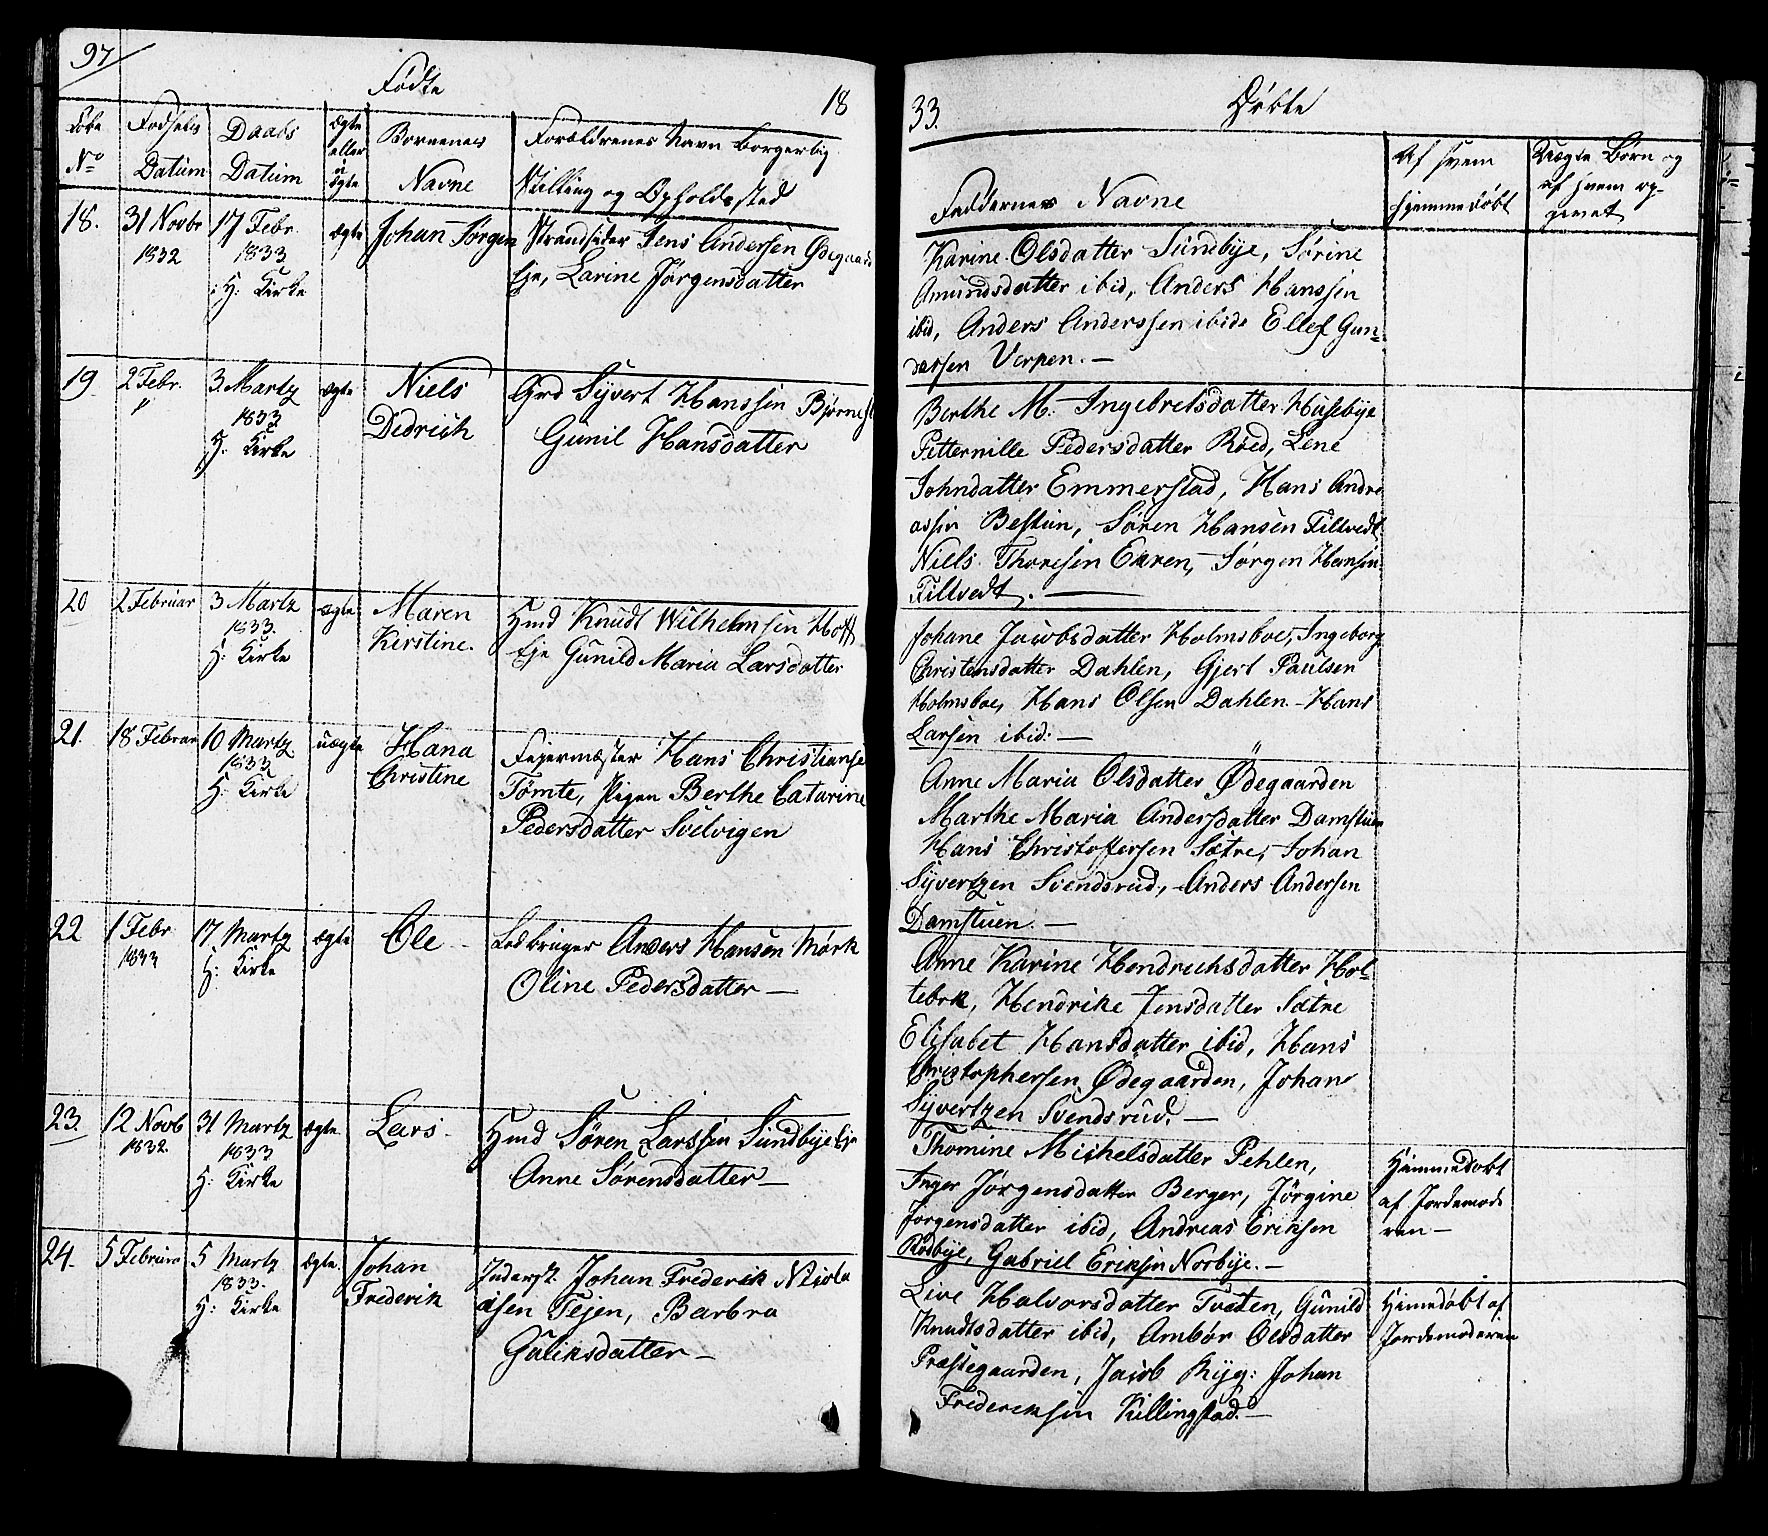 97
Fødte
18
Løbe
No
Fødsels
Datum
Daabs
Datum
Ægte
eller
u
ægte
Børnenes
Navne
Forældrenes Navn borgerlig
Stilling og Opholdssted
18.
31 Novbr
1832
17 Febr.
1833
H: Kirke
ægte
Johan Jørgen
Strandsider Jens Andersen Ødegaard
Eje, Larine Jørgensdatter
19.
2 Febr.
"
3 Martz
1833
H: Kirke
ægte
Niels
Didrich
Grd Syvert Hanssen
Gunil Hansdatter
20
2 Februar
3 Martz
1833.
H: Kirke
ægte
Maren
Kirstine.
Hmd Knudt Wilhelmsen Hoff
Eje Gunild Maria Larsdatter
21.
18 Februar
10 Martz
1833
H: Kirke
uægte
Hana
Christine
Fejermester Hans Christianse
Tømte, Pigen Berthe Catarine
Pedersdatter Svelvigen
22
1 Febr
1833
17 Martz
H: Kirke
ægte
Ole
Ledbruger Anders Hansen Mørk
Oline Pedersdatter —
23.
12 Novb
1832.
31 Martz
1833
H: Kirke
ægte
Lars.
Hmd Søren Larssen Sundbye Eje
Anne Sørensdatter —
24.
5 Februar
5 Martz
1833.
H: Kirke
ægte.
Johan
Frederik
Inderst. Johan Frederik Nicola
isen Tejen, Barbra
Guliksdatter —
33.
Døbte
Faddernes Navne
Af hvem
hjemmedøbt
Uægte Børn og
af hvem op-
givet
Karine Olsdatter Sundbye, Sørine
Amundsdatter ibid, Anders Hanssen
ibid, Anders Anderssen ibid. Ellef Gun-
dersen Verpen. —
Berthe M. Ingebretsdatter Husebye
Petternille Pedersdatter Røed, Lene
Johndatter Emmerstad, Hans Andre
assen Bestun, Søren Hansen Filtvedt
Niels Thoresen Ekren, Jørgen Hansen
Filtvedt. —
Johane Jacobsdatter Holmsboe, Ingeborg
Christensdatter Dahlen, Gjert Paulsen
Holmsboe, Hans Olsen Dahlen - Hans
Larsen ibid: —
Anne Maria Olsdatter Ødegaarden
Marthe Maria Andersdatter Damstuen
Hans Christoffersen Sætre, Johan
Syvertzen Svendsrud, Anders Andersen
Damstuen. —
Anne Karine Hendrichsdatter Hol-
tebrk, Hendrike Jensdatter Sætre
Elisabet Hansdatter ibid, Hans
Christophersen Ødegaarden, Johan
Syvertzen Svendsrud. —
Thomine Michelsdatter Pehlen,
Inger Jørgensdatter Berger, Jørgine
Jørgensdatter ibid, Andreas Eriksen
Rødbye, Gabriel Eriksen Norbye. —
Hjemmedøbt
af Jordemode
ren —
Live Halvorsdatter Tveten, Gunild
Knudtsdatter ibid, Ambør Olsdatter
Præstegaarden, Jacob Ryg: Johan
Frederiksen Killingstad. —
Himedøbt af
Jordemoderen